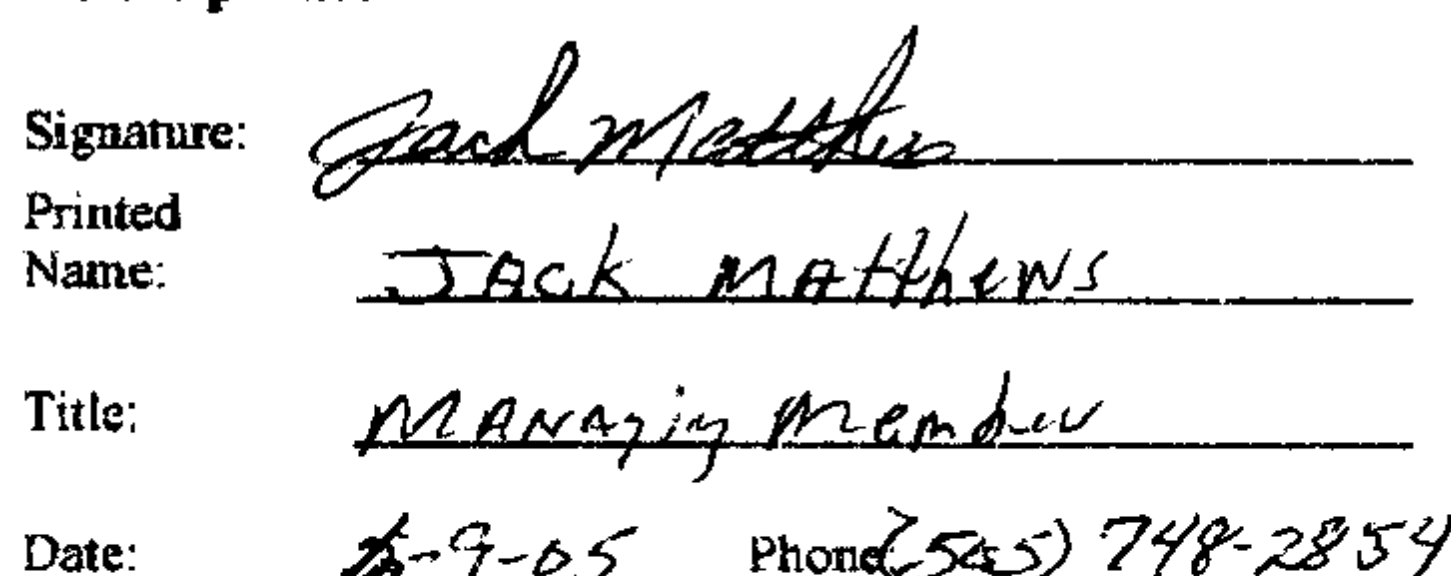 Signature: Jack Matthews
Printed
Name: JACK MATTHEWS
Title: MANAging Member
Date: -9-05 Phone: (505) 748-2854